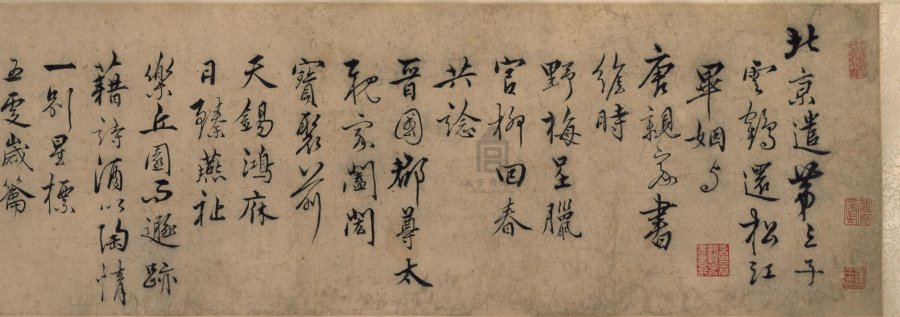 北京遣第三子
雲鶴還松江
畢姻与
唐親家書
維時
野梅呈臘
官柳回春
共谂
晉國郡尊太
親家闔閎
寶聚前
天錫鴻庥
日臻燕祉
樂丘園而遯跡
藉詩酒以陶情
一别星標
五更歲籥